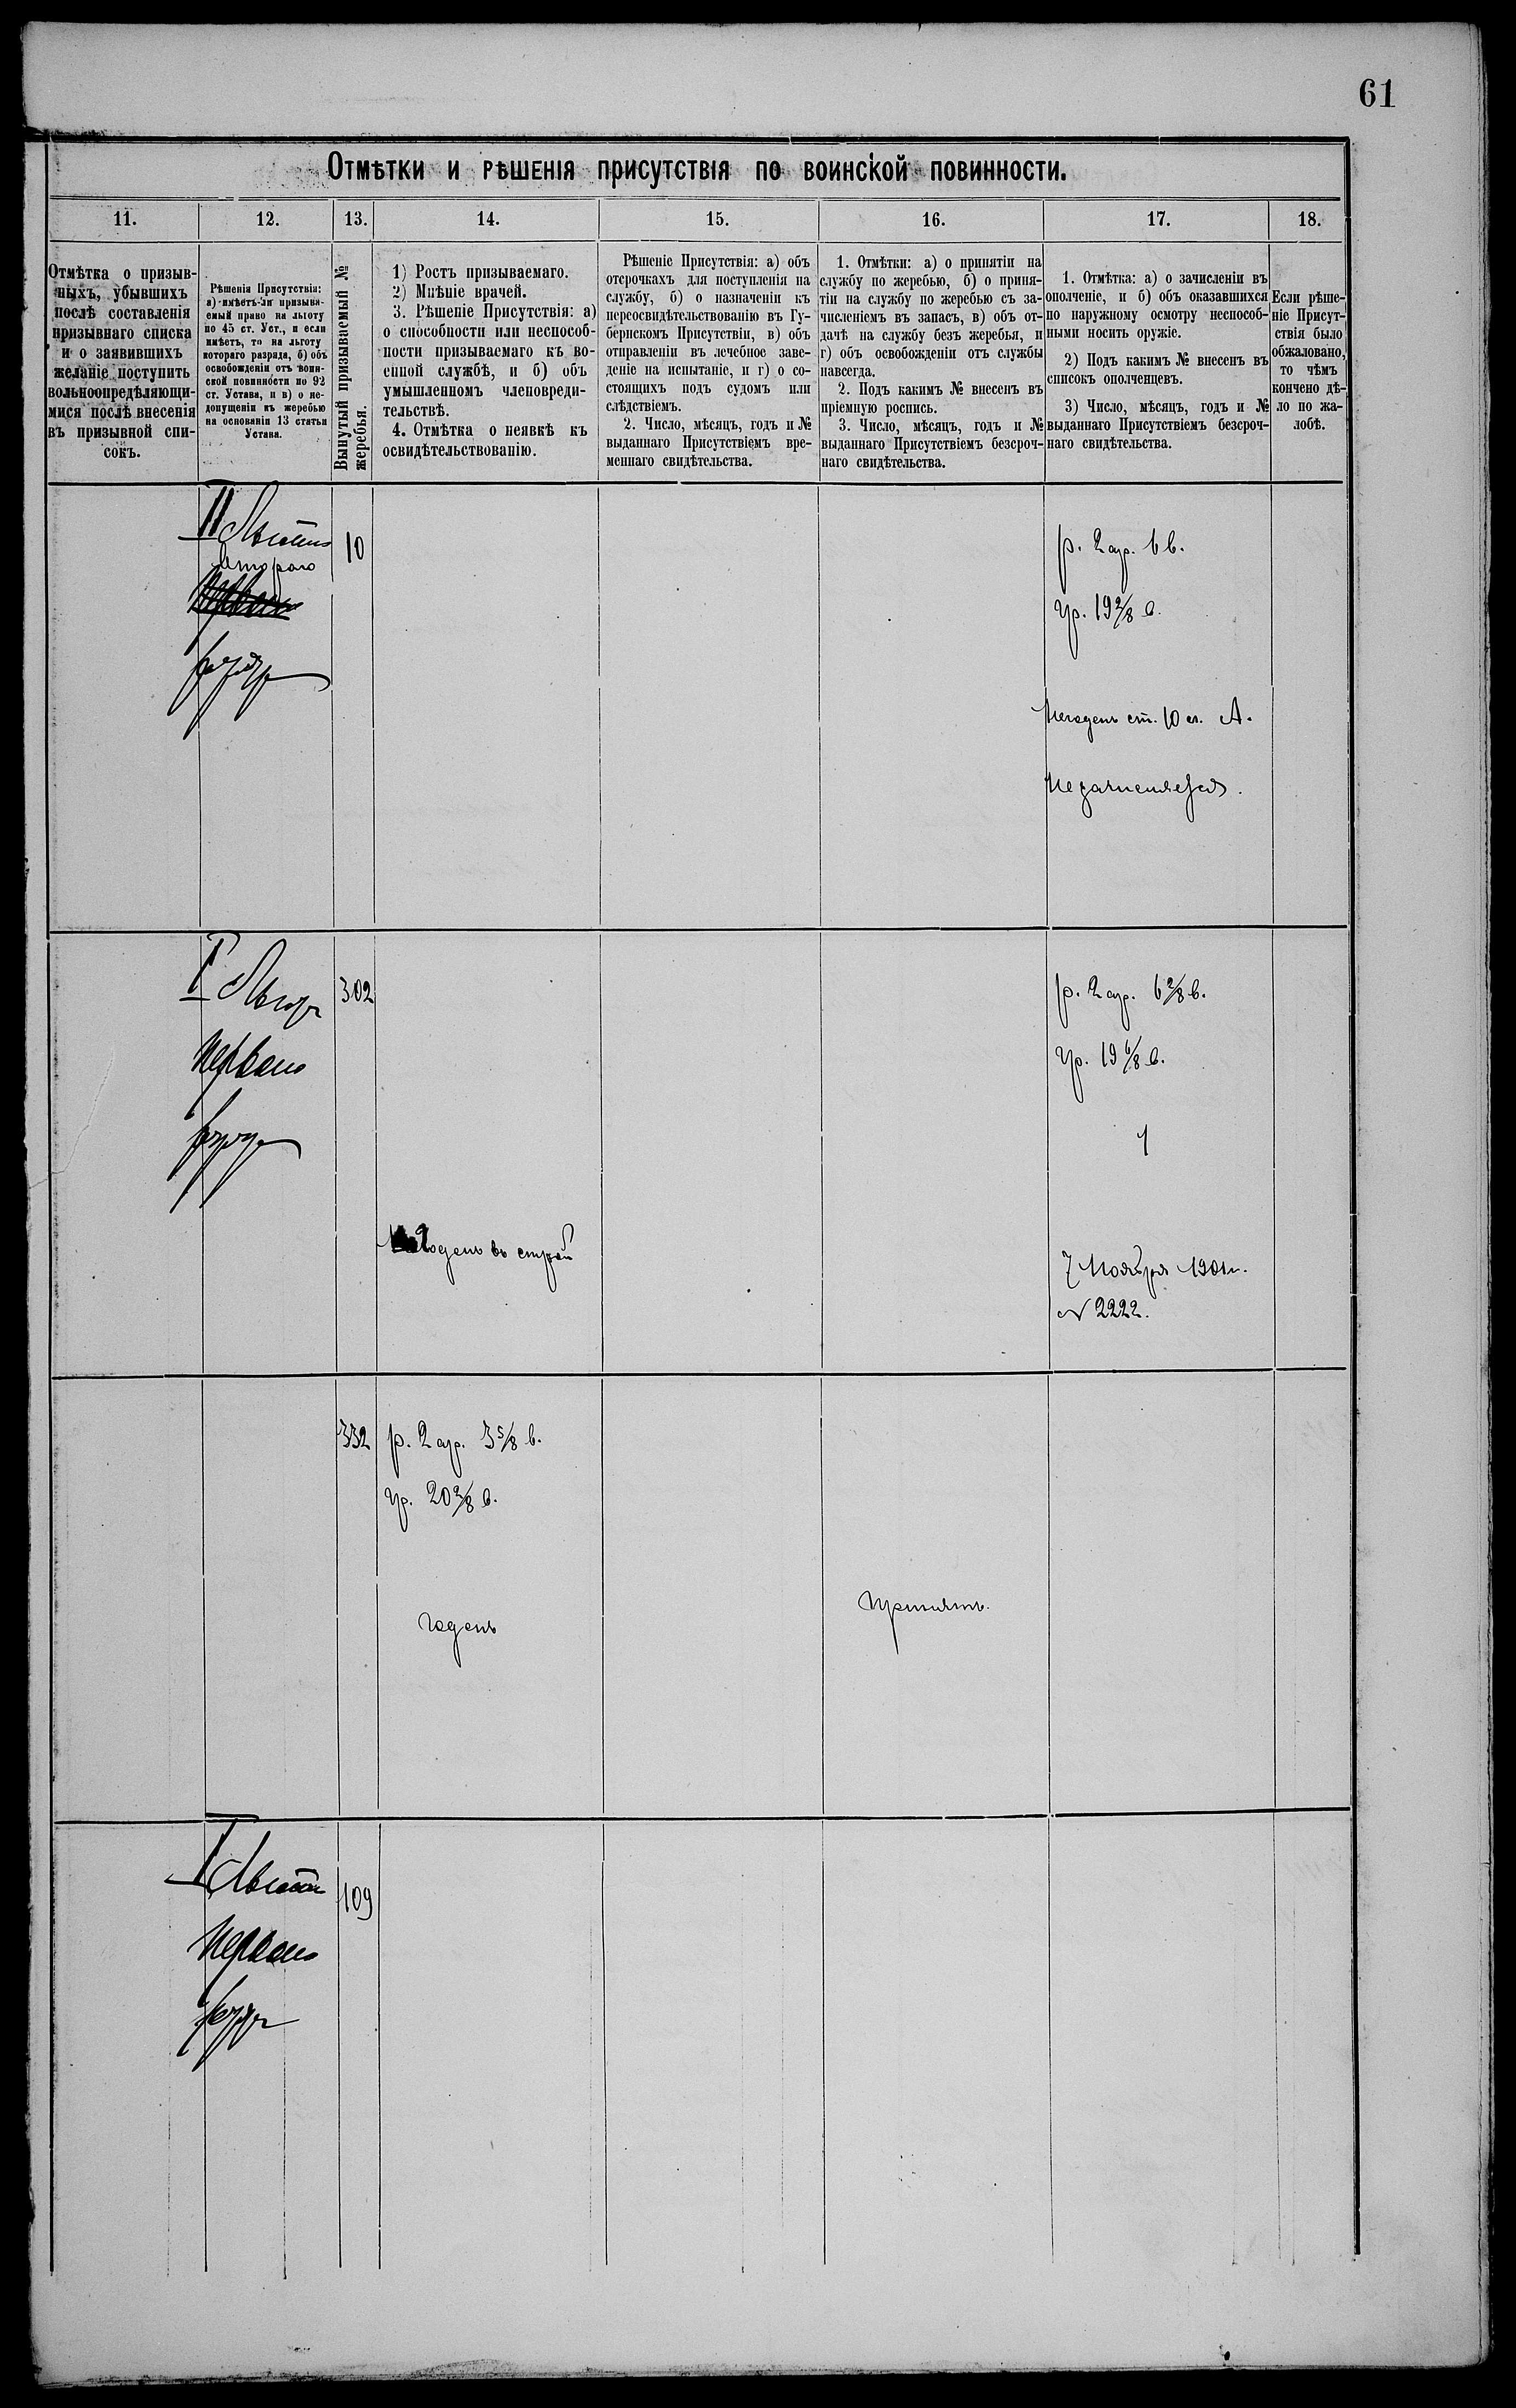 61
Отмѣтки и рѣшенія присутствія по воинской повинности.
11.
12.
13.
14.
15.
16.
17.
18.
Отмѣтка о призыв-
ныхъ, убывшихъ
послѣ составленія
призывнаго списка
и о заявившихъ
желаніе поступить
вольноопредѣляющи-
мися послѣ внесенія
въ призывной спи-
сокъ.
Рѣшенія Присутствія:
а) имѣетъ-ли призыва-
емый право на льготу
по 45 ст. Уст., и если
имѣетъ, то на льготу
котораго разряда, б) объ
освобожденіи отъ воин-
ской повинности по 92
ст. Устава, и в) о не-
допущеніи къ жеребью
на основаніи 13 статьи
Устава.
Вынутый призываемый №
жеребья.
1) Ростъ призываемаго.
2) Мнѣніе врачей.
3. Рѣшеніе Присутствія: а)
о способности или неспособ-
ности призываемаго къ во-
енной службѣ, и б) объ
умышленномъ членовреди-
тельствѣ.
4. Отмѣтка о неявкѣ къ
освидѣтельствованію.
Рѣшеніе Присутствія: а) объ
отсрочкахъ для поступленія на
службу, б) о назначеніи къ
переосвидѣтельствованію въ Гу-
бернскомъ Присутствіи, в) объ
отправленіи въ лечебное заве-
деніе на испытаніе, и г) о со-
стоящихъ подъ судомъ или
слѣдствіемъ.
2. Число, мѣсяцъ, годъ и №
выданнаго Присутствіемъ вре-
меннаго свидѣтельства.
1. Отмѣтки: а) о принятіи на
службу по жеребью, б) о приня-
тіи на службу по жеребью съ за-
численіемъ въ запасъ, в) объ от-
дачѣ на службу безъ жеребья, и
г) объ освобожденіи отъ службы
навсегда.
2. Подъ какимъ № внесенъ въ
пріемную роспись.
3. Число, мѣсяцъ, годъ и №
выданнаго Присутствіемъ безсроч-
наго свидѣтельства.
1. Отмѣтка: а) о зачисленіи въ
ополченіе, и б) объ оказавшихся
по наружному осмотру неспособ-
ными носить оружіе.
2) Подъ какимъ № внесенъ въ
списокъ ополченцевъ.
3) Число, мѣсяцъ, годъ и №
выданнаго Присутствіемъ безсроч-
наго свидѣтельства.
Если рѣше-
ніе Присут-
ствія было
обжаловано,
то чѣмъ
кончено дѣ-
ло по жа-
лобѣ.
II
второго
10
р. 2 ар. 6 в.
гр. 19 2/8 в.
Негоденъ ст. 10 л. А.
Незачисляется.
I
Перваго
302
годенъ въ строй
р. 2 ар. 6 2/8 в.
гр. 19 6/8 в.
7 Ноября 1901 г.
№ 2222.
332
р. 2 ар. 3 5/8 в.
гр. 20 2/8 в.
годенъ
Принятъ.
I
Перваго
109